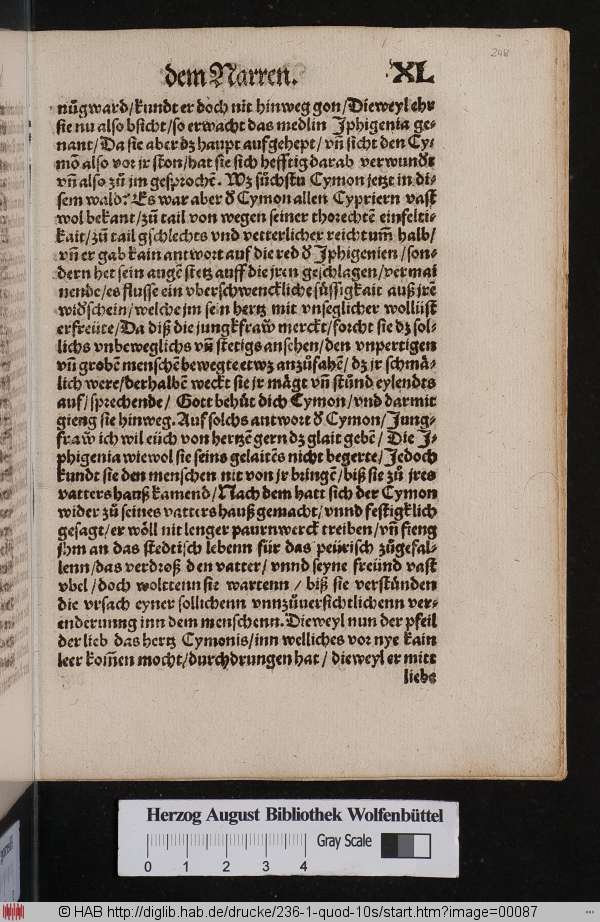 248
dem Narren. XL
nūgward/kundt er doch nit hinweg gon/Dieweyl ehr
sie nu also bsicht/so erwacht das medlin Iphigenia ge-
nant/Da sie aber dz haupt aufgehept/vñ sicht den Cy-
mō also vor jr ston/hat sie sich hefftig darab verwundt
vñ also zů jm gesprochē. Wz sůchstu Cymon jetzt in di-
sem wald? Es war aber d̄ Cymon allen Cypriern vast
wol bekant/zů tail von wegen seiner thorechtē einfelti-
kait/zů tail gschlechts vnd vetterlicher reichtum̄ halb/
vñ er gab kain antwort auf die red d̄ Iphigenien/son-
dern het sein augē stetz auff die jren geschlagen/vermai
nende/es flusse ein vberschwenckliche süssigkait auß jrē
widschein/welche jm sein hertz mit vnseglicher wollüst
erfreüte/Da diß die jungkfraw̄ merckt/forcht sie dz sol-
lichs vnbeweglichs vñ stetigs ansehen/den vnpertigen
vñ grobē menschē bewegte etwz anzůfahē/dz jr schmä-
lich were/derhalbē weckt sie jr mägt vñ stůnd eylendts
auf/sprechende/Gott behůt dich Cymon/vnd darmit
gieng sie hinweg. Auf solchs antwort d̄ Cymon/Jung-
fraw̄ ich wil eüch von hertzē gern dz glait gebē/Die I-
phigenia wiewol sie seins gelaitēs nicht begerte/Jedoch
kundt sie den menschen nit von jr bringē/biß sie zů jres
vatters hauß kamend/Nach dem hatt sich der Cymon
wider zů seines vatters hauß gemacht/vnnd festigklich
gesagt/er wöll nit lenger paurnwerck treiben/vñ fieng
jhm an das stedtisch lebenn für das peürisch zůgefal-
lenn/das verdroß den vatter/vnnd seyne freünd vast
vbel/doch wolttenn sie wartenn/biß sie verstůnden
die vrsach eyner sollichenn vnnzůuersichtlichenn ver-
enderunng inn dem menschenn. Dieweyl nun der pfeil
der lieb das hertz Cymonis/inn welliches vor nye kain
leer kom̄en mocht/durchdrungen hat/dieweyl er mitt
liebs
Herzog August Bibliothek Wolfenbüttel
Gray Scale
0 1 2 3 4
© HAB http://diglib.hab.de/drucke/236-1-quod-10s/start.htm?image=00087